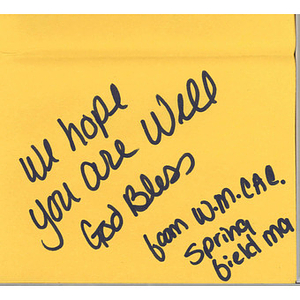 We hope
you are Well
God Bless
from W.M.C.A.C.
Spring
field ma